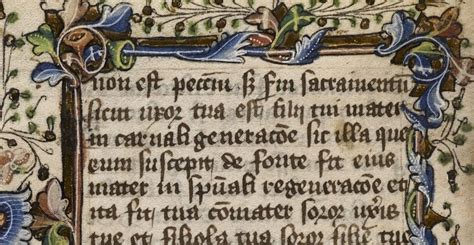 non est peccm sȝ fm sacramentu
sicut uxor tua est filii tui mater
in carnali generacõe sic illa que
eum suscepit de fonte fit eius
mater in spũali regeneracõe et
ita fit tua cõmater soror uxoris
tue et filiola tua soror filie tue